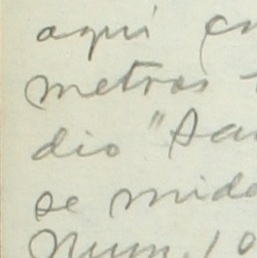 aquí en
metros
dio "Sa
se mide
Num. 10